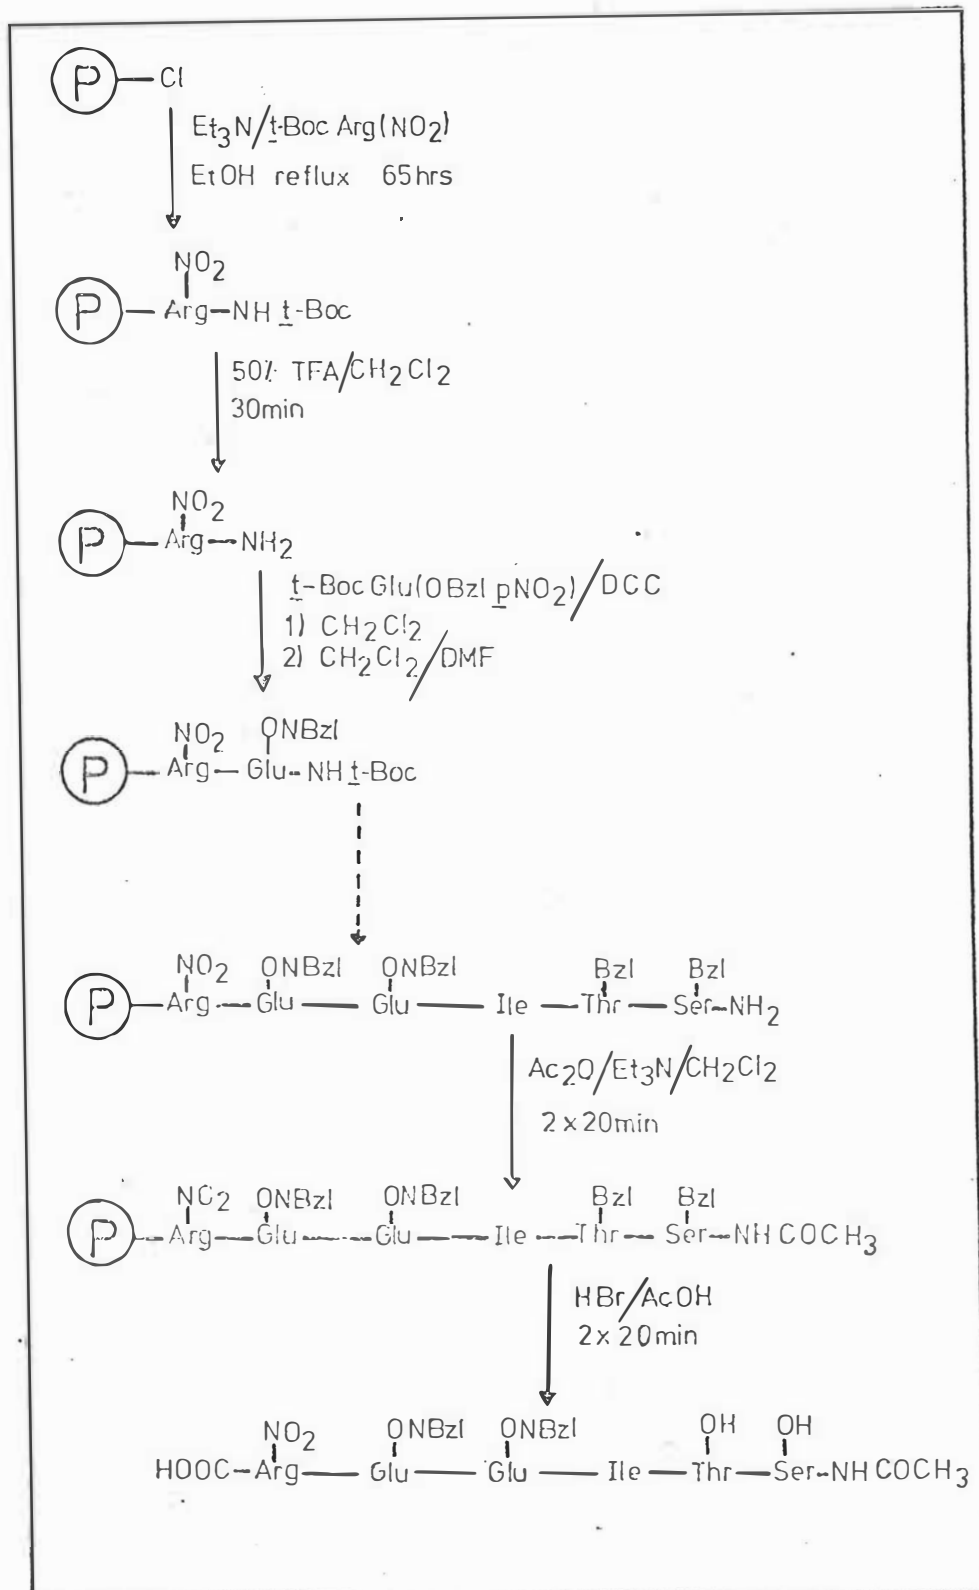 P Cl
Et3N/t-Boc Arg(NO2)
EtOH reflux 65hrs
NO2
P Arg-NH t-Boc
50% TFA/CH2Cl2
30min
NO2
P Arg-NH2
t-Boc Glu(OBzl pNO2)/DCC
1) CH2Cl2
2) CH2Cl2/DMF
NO2 ONBzl
P Arg-Glu-NH t-Boc
NO2 ONBzl ONBzl Bzl Bzl
P Arg-Glu-Glu-Ile-Thr-Ser-NH2
Ac2O/Et3N/CH2Cl2
2 x 20min
NO2 ONBzl ONBzl Bzl Bzl
P Arg-Glu-Glu-Ile-Thr-Ser-NHCOCH3
HBr/AcOH
2 x 20min
NO2 ONBzl ONBzl OH OH
HOOC-Arg-Glu-Glu-Ile-Thr-Ser-NHCOCH3